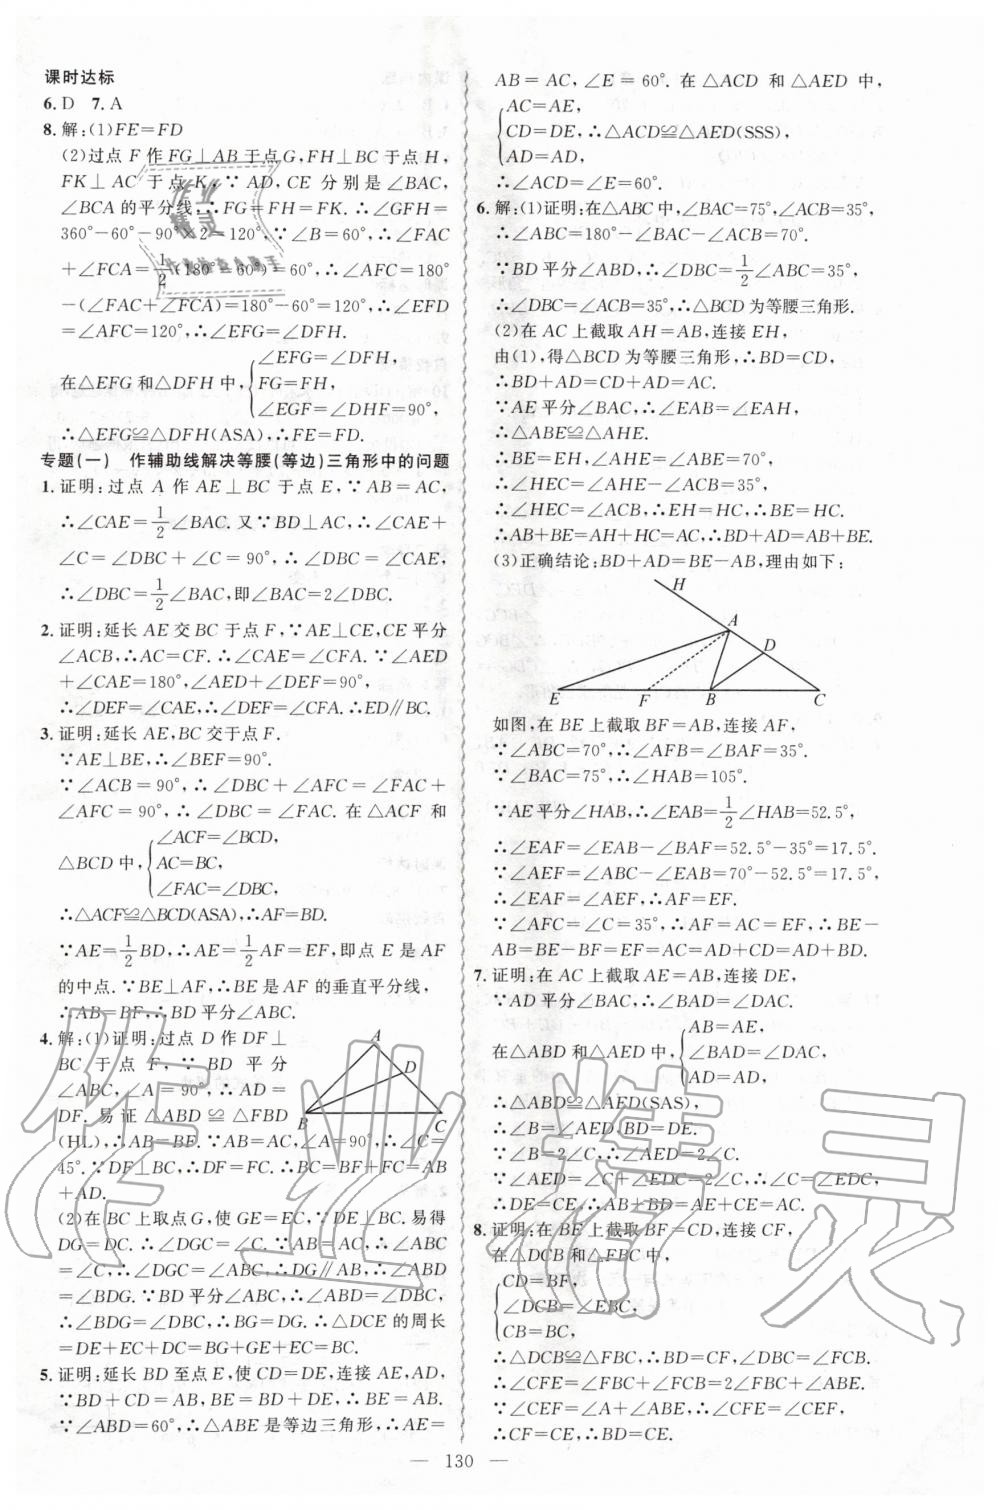 课时达标
6.D 7.A
8.解:(1)FE=FD
(2)过点 F 作 FG⊥AB 于点 G,FH⊥BC 于点 H,
FK⊥AC 于点 K,∵AD,CE 分别是∠BAC,
∠BCA 的平分线,∴FG=FH=FK.∴∠GFH=
360°-60°-90°×2=120°,∵∠B=60°,∴∠FAC
+∠FCA=1/2(180°-60°)=60°,∴∠AFC=180°
-(∠FAC+∠FCA)=180°-60°=120°,∴∠EFD
=∠AFC=120°,∴∠EFG=∠DFH.
在△EFG 和△DFH 中,{∠EFG=∠DFH,
FG=FH,
∠EGF=∠DHF=90°,
∴△EFG≌△DFH(ASA),∴FE=FD.
专题(一) 作辅助线解决等腰(等边)三角形中的问题
1.证明:过点 A 作 AE⊥BC 于点 E,∵AB=AC,
∴∠CAE=1/2∠BAC.又∵BD⊥AC,∴∠CAE+
∠C=∠DBC+∠C=90°,∴∠DBC=∠CAE,
∴∠DBC=1/2∠BAC,即∠BAC=2∠DBC.
2.证明:延长 AE 交 BC 于点 F,∵AE⊥CE,CE 平分
∠ACB,∴AC=CF.∴∠CAE=∠CFA.∵∠AED
+∠CAE=180°,∠AED+∠DEF=90°,
∴∠DEF=∠CAE,∴∠DEF=∠CFA.∴ED∥BC.
3.证明:延长 AE,BC 交于点 F.
∵AE⊥BE,∴∠BEF=90°.
∵∠ACB=90°,∴∠DBC+∠AFC=∠FAC+
∠AFC=90°,∴∠DBC=∠FAC.在△ACF 和
△BCD 中,{∠ACF=∠BCD,
AC=BC,
∠FAC=∠DBC,
∴△ACF≌△BCD(ASA),∴AF=BD.
∵AE=1/2BD,∴AE=1/2AF=EF,即点 E 是 AF
的中点.∵BE⊥AF,∴BE 是 AF 的垂直平分线,
∴AB=BF,∴BD 平分∠ABC.
4.解:(1)证明:过点 D 作 DF⊥
BC 于点 F,∵BD 平分
∠ABC,∠A=90°,∴AD=
DF.易证△ABD≌△FBD
(HL),∴AB=BE.∵AB=AC,∠A=90°,∴∠C=
45°.∵DF⊥BC,∴DF=FC.∴BC=BF+FC=AB
+AD.
A
D
B
C
(2)在 BC 上取点 G,使 GE=EC,∵DE⊥BC.易得
DG=DC.∴∠DGC=∠C.∵AB=AC,∴∠ABC
=∠C,∴∠DGC=∠ABC,∴DG∥AB,∴∠ABD
=∠BDG.∵BD 平分∠ABC,∴∠ABD=∠DBC,
∴∠BDG=∠DBC,∴BG=DG.∴△DCE 的周长
=DE+EC+DC=BG+GE+EC=BC.
5.证明:延长 BD 至点 E,使 CD=DE,连接 AE,AD,
∵BD+CD=AB,BE=BD+DE,∴BE=AB.
∵∠ABD=60°,∴△ABE 是等边三角形,∴AE=
AB=AC,∠E=60°.在△ACD 和△AED 中,
{AC=AE,
CD=DE,∴△ACD≌△AED(SSS),
AD=AD,
∴∠ACD=∠E=60°.
6.解:(1)证明:在△ABC 中,∠BAC=75°,∠ACB=35°,
∴∠ABC=180°-∠BAC-∠ACB=70°.
∵BD 平分∠ABD,∴∠DBC=1/2∠ABC=35°,
∴∠DBC=∠ACB=35°,∴△BCD 为等腰三角形.
(2)在 AC 上截取 AH=AB,连接 EH,
由(1),得△BCD 为等腰三角形,∴BD=CD,
∴BD+AD=CD+AD=AC.
∵AE 平分∠BAC,∴∠EAB=∠EAH,
∴△ABE≌△AHE.
∴BE=EH,∠AHE=∠ABE=70°,
∴∠HEC=∠AHE-∠ACB=35°,
∴∠HEC=∠ACB,∴EH=HC,∴BE=HC.
∴AB+BE=AH+HC=AC,∴BD+AD=AB+BE.
(3)正确结论:BD+AD=BE-AB,理由如下:
H
A
D
E
F
B
C
如图,在 BE 上截取 BF=AB,连接 AF,
∵∠ABC=70°,∴∠AFB=∠BAF=35°.
∵∠BAC=75°,∴∠HAB=105°.
∵AE 平分∠HAB,∴∠EAB=1/2∠HAB=52.5°,
∴∠EAF=∠EAB-∠BAF=52.5°-35°=17.5°.
∵∠AEF=∠ABC-∠EAB=70°-52.5°=17.5°,
∴∠EAF=∠AEF,∴AF=EF.
∵∠AFC=∠C=35°,∴AF=AC=EF,∴BE-
AB=BE-BF=EF=AC=AD+CD=AD+BD.
7.证明:在 AC 上截取 AE=AB,连接 DE,
∵AD 平分∠BAC,∴∠BAD=∠DAC.
在△ABD 和△AED 中,{AB=AE,
∠BAD=∠DAC,
AD=AD,
∴△ABD≌△AED(SAS),
∴∠B=∠AED,BD=DE.
∵∠B=2∠C,∴∠AED=2∠C.
∵∠AED=∠C+∠EDC=2∠C,∴∠C=∠EDC,
∴DE=CE,∴AB+BD=AE+CE=AC.
8.证明:在 BE 上截取 BF=CD,连接 CF,
在△DCB 和△FBC 中,
{CD=BF,
∠DCB=∠EBC,
CB=BC,
∴△DCB≌△FBC,∴BD=CF,∠DBC=∠FCB.
∴∠CFE=∠FBC+∠FCB=2∠FBC=∠A,
∵∠CFE=∠A+∠ABD,∠CEF=∠A+∠ABD,∴∠CFE=∠CEF,
∴CF=CE.∴BD=CE.
130
作业精灵